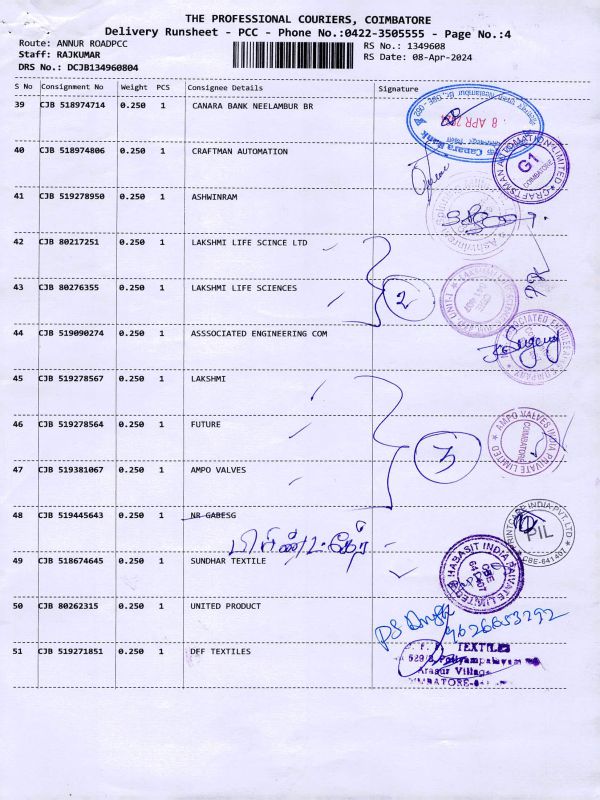 THE PROFESSIONAL COURIERS, COIMBATORE
Delivery Runsheet - PCC - Phone No.:0422-3505555 - Page No.:4
Route: ANNUR ROADPCC
RS No.: 1349608
Staff: RAJKUMAR
RS Date: 08-Apr-2024
DRS No.: DCJB134960804
S No Consignment No Weight PCS Consignee Details Signature
39 CJB 518974714 0.250 1 CANARA BANK NEELAMBUR BR
8 APR 2024
Canara Bank
40 CJB 518974806 0.250 1 CRAFTMAN AUTOMATION
CRAFTSMAN AUTOMATION LIMITED
G1
COIMBATORE
41 CJB 519278950 0.250 1 ASHWINRAM
42 CJB 80217251 0.250 1 LAKSHMI LIFE SCINCE LTD
43 CJB 80276355 0.250 1 LAKSHMI LIFE SCIENCES
2
44 CJB 519090274 0.250 1 ASSSOCIATED ENGINEERING COM
45 CJB 519278567 0.250 1 LAKSHMI
46 CJB 519278564 0.250 1 FUTURE
AMPO VALVES INDIA PRIVATE LIMITED
COIMBATORE
3
47 CJB 519381067 0.250 1 AMPO VALVES
48 CJB 519445643 0.250 1 NR GABESG
INDIA PVT LTD
PIL
CBE-641407
49 CJB 518674645 0.250 1 SUNDHAR TEXTILE
HABASIT INDIA PRIVATE LIMITED
CBE
641 407
50 CJB 80262315 0.250 1 UNITED PRODUCT
9626653292
51 CJB 519271851 0.250 1 DFF TEXTILES
TEXTILES
Arasur Village